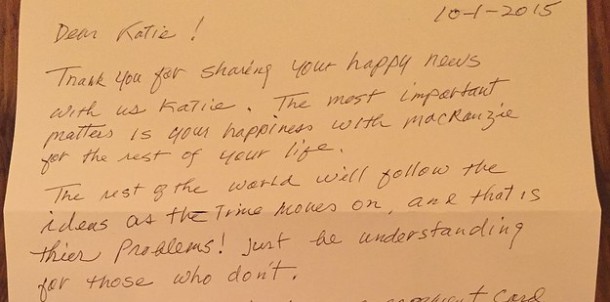 10-1-2015
Dear Katie !
Thank you for sharing your happy news
with us Katie. The most important
matters is your happiness with MacKenzie
for the rest of your life.
The rest of the world will follow the
ideas as the Time moves on, and that is
thier problems! Just be understanding
for those who don't.
comment card